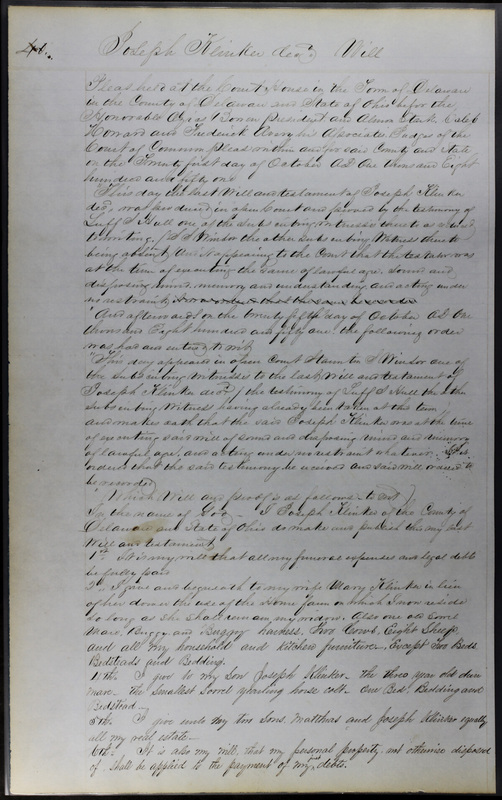 46.
Joseph Klinker decd Will
Pleas held at the Court House in the Town of Delaware
in the County of Delaware and State of Ohio before the
Honorable Bowen President and Caleb
Howard and Frederick Associate Judges of the
Court of Common Pleas within and for said County and State
on the Twenty first day of October AD One thousand Eight
hundred and fifty one
This day the last Will and testament of Joseph Klinker
decd was produced in open Court and proved by the testimony of
Luff S Hull one of the Subscribing Witnesses thereto as reduced
to writing. S Winsor the other Subscribing Witness thereto
being absent, And it appearing to the Court that the testator was
at the time of executing the same of lawful age, sound and
disposing mind, memory and understanding and acting under
no restraint,
And afterwards on the twenty fifth day of October AD One
thousand Eight hundred and fifty one the following order
was had and entered to wit,
"This day appeared in open Court S Winsor one of
the subscribing Witnesses to the last Will and testament of
Joseph Klinker decd (the testimony of Luff S Hull the other
subscribing Witness having already been taken at this term
and makes oath that the said Joseph Klinker was at the time
of executing said will of sound and disposing mind and memory
of lawful age, and acting under no restraint whatever.
ordered that the said testimony be received and said will ordered to
be recorded
Which Will and proof is as follows to wit
In the name of God. I Joseph Klinker of the County of
Delaware and State of Ohio do make and publish this my last
Will and testament,
1st It is my will that all my funeral expenses and legal debts
be fully paid
2nd I give and bequeath to my wife Mary Klinker in lieu
of her dower the use of the Home farm on which I now reside
so long as she shall remain my widow. Also one Sorrel
Mare. Buggy and Buggy harness. Two Cows. Eight Sheep.
and all my household and kitchen furniture. Except Two Beds
Bedsteads and Bedding.
I give to my son Joseph Klinker. the three year old dun
mare. the smallest Sorrel yearling horse colt. One Bed. Bedding and
Bedstead.
5th. I give unto my two sons. Matthias and Joseph Klinker equally
all my real estate.
6th. It is also my will. that my personal property. not otherwise disposed
of. shall be applied to the payment of my just debts.